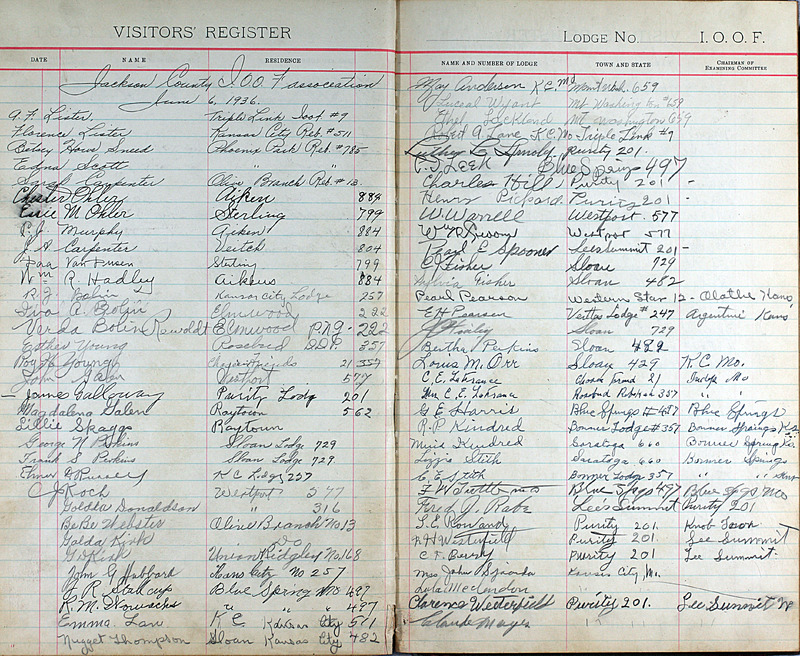 VISITORS' REGISTER
DATE NAME RESIDENCE
Jackson County I.O.O.F association
June 6, 1936.
A. F. Lister. Triple Link Ioof #9
Florence Lister Kansas City Reb. #511
Betsey Sneed Phoenix Park Reb. #785
Edna Scott " "
Sarah Carpenter Olive Branch Reb #13.
Chester Ohler Aiken 884
Essie M Ohler Sterling 799
P. J. Murphy Aiken 884
J. A. Carpenter Veitch 804
Van Dusen Sterling 799
Wm R Hadley Aikens 884
R. J. Bolin Kansas City Lodge 257
Iva A. Bolin Elmwood 222
Verda Bolin Rewoldt Elmwood P.N.G - 222
Esther Young Rosebud 357
Roy H Young 21
John Salen Westport 577
James Galloway Purity Lodg 201
Magdalena Salen Raytown 562
Lillie Skaggs Raytown
George N Perkins Sloan Lodge 729
Frank S. Perkins Sloan Lodge 729
Elmer G Russell K C Lodge 257
C J Koch Westport 577
Goldia Donaldson " 316
BeBe Webster Olive Branch No 13
Golda Kirk Do
G. Kirk Union Ridgley No 168
John G Hubbard Kans City No 257
J. R. Stallcup Blue Spring Mo 497
K. M. " " 497
Emma Lau K C Kansas City 511
Nugget Thompson Sloan Kansas City 482
LODGE NO. I. O. O. F.
NAME AND NUMBER OF LODGE TOWN AND STATE CHAIRMAN OF EXAMINING COMMITTEE
May Anderson K.C. Mo 659
Wyant Mt. Washington #659
Ethel Lockland Mt Washington 659
Robert A Lane K.C. Mo Triple Link #9
Luther L Arnold Purity 201.
C. S. Leek Blue Springs 497
Charles Hill Purity 201 -
Henry Pickard Purity 201 -
W. Warrell Westport. 577
Wm Westport 577
Pearl E Spooner Lees Summit 201 -
C Fisher Sloan 729
Sylvia Fisher Sloan 482
Pearl Pearson Western Star 12 - Olathe Kans.
E H Pearson Lodge # 247 Argentine Kans
J Sloan 729
Bertha Perkins Sloan 482
Louis M. Orr Sloan 429 K. C. Mo.
C. E. LaFrance 21 Indep Mo
Mrs C. E. LaFrance Rosebud Rebekah 357 " "
G E Harris Blue Springs # 497 Blue Springs
R. P. Kindred Bonner Lodge # 357 Bonner Springs Ks
Kindred Saratoga 660 Bonner Spring Ks.
Lizzie Stith Saratoga 660 Bonner Springs
C. E. Stith Bonner Lodge 357 " " Kans
F W Tuttle Blue Spgs 497 Blue Spgs Mo
Fred J. Rabe Lees Summit Purity 201
S. E. Rowland Purity 201. Knob Noster
R H Westerfield Purity 201. Lee Summit
C. F. Berry Purity 201 Lee Summit.
Mrs John Kansas City, Mo.
Lula McClendon
Clarence Westerfield Purity 201. Lee Summit
Claude Mayes " "